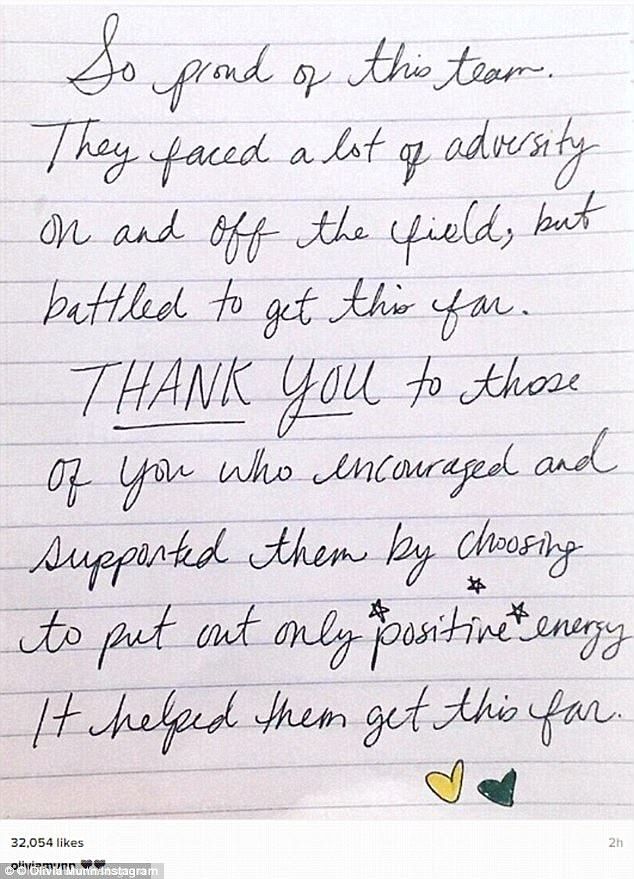 So proud of this team.
They faced a lot of adversity
on and off the field, but
battled to get this far.
THANK YOU to those
of you who encouraged and
supported them by choosing
to put out only positive energy
It helped them get this far.
32,054 likes
2h
oliviamunn
© Olivia Munn/Instagram